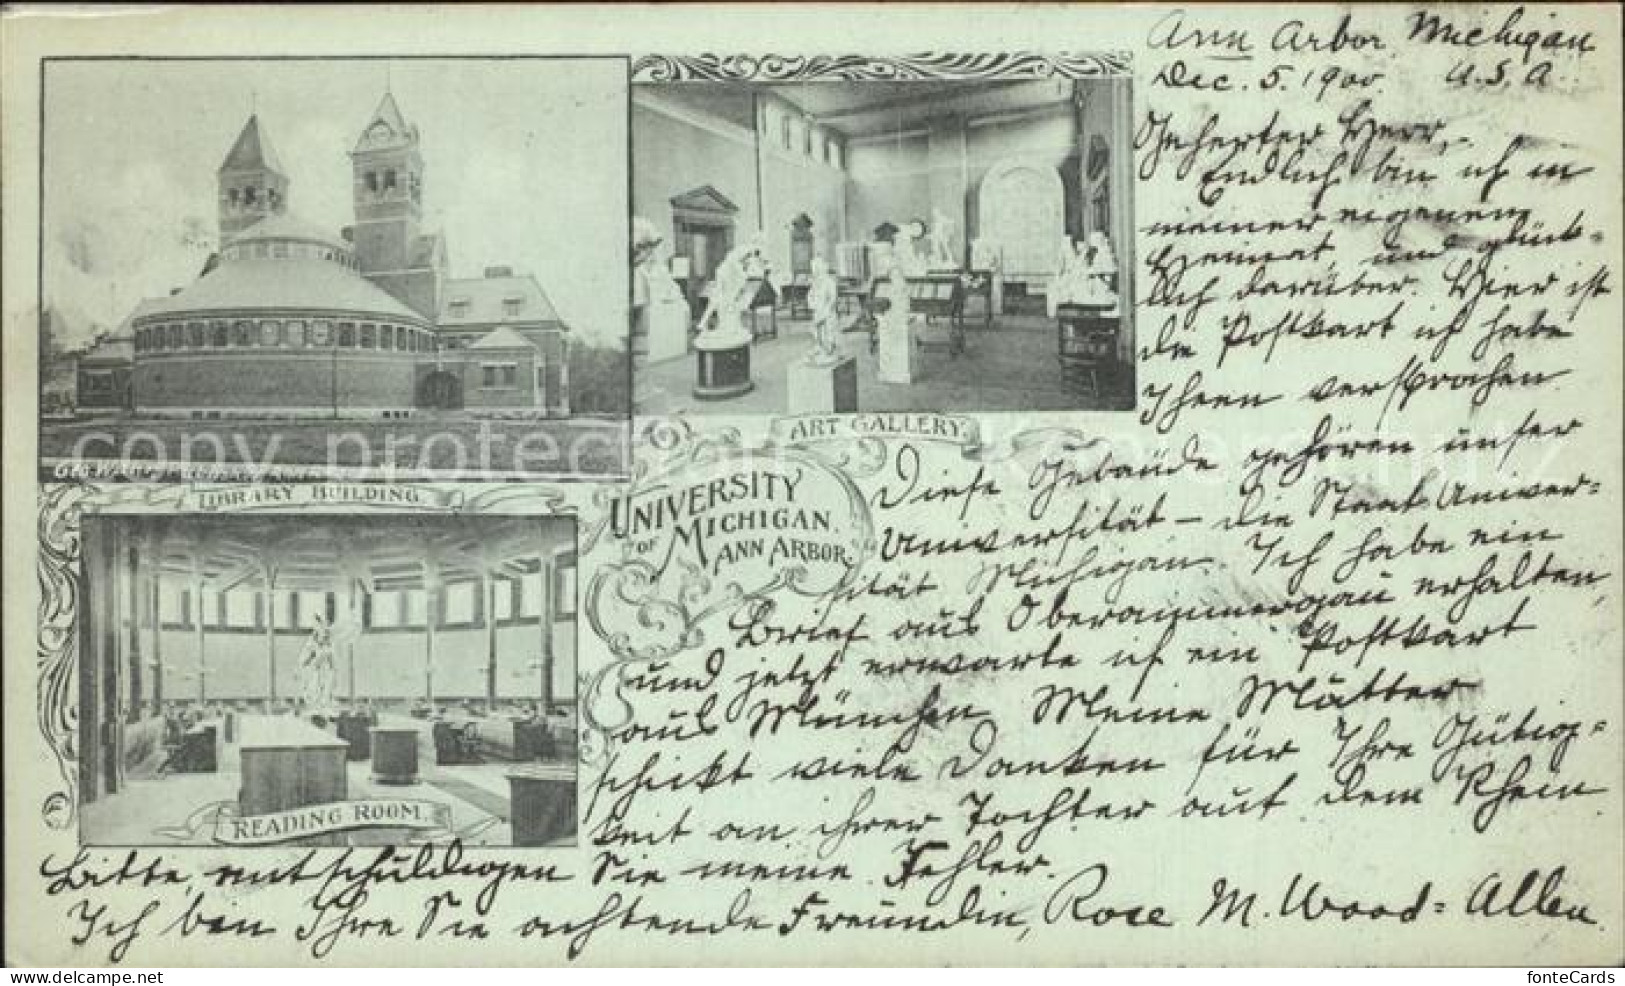 Ann Arbor, Michigan
Dec. 5. 1900. U.S.A.
Geherter Herr,
Endlich bin ich in
meiner eigenen
Heimat, und glück-
lich darüber. Hier ist
die Postkart ich habe
Ihnen versprochen
Diese Gebäude gehören unser
Universität – die Staat Univer=
sität Michigan. Ich habe ein
Brief aus Oberammergau erhalten,
und jetzt erwarte ich ein Postkart
aus München Meine Mütter
schickt viele Danken für Ihre Gütig=
keit an ihrer Tochter auf dem Rhein.
Bitte, entschüldigen Sie meine Fehler.
Ich bin Ihre Sie achtende Freundin, Rose M. Wood=Allen.
ART GALLERY.
LIBRARY BUILDING.
UNIVERSITY
OF MICHIGAN.
ANN ARBOR.
READING ROOM.
copy protection
fonteCards